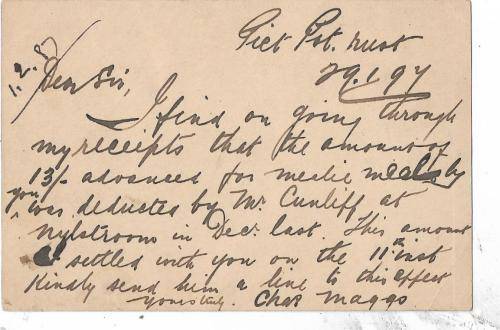 Piet Pot. rust
29.1.97
1.2.97
Dear Sir,
I find on going through
my receipts that the amount of
13/- advanced for mealie meal by
you was deducted by Mr. Cunliff at
Nylstroom in Decr. last. This amount
I settled with you on the 11th inst
Kindly send him a line to this effect
Yours truly. Chas Maggs